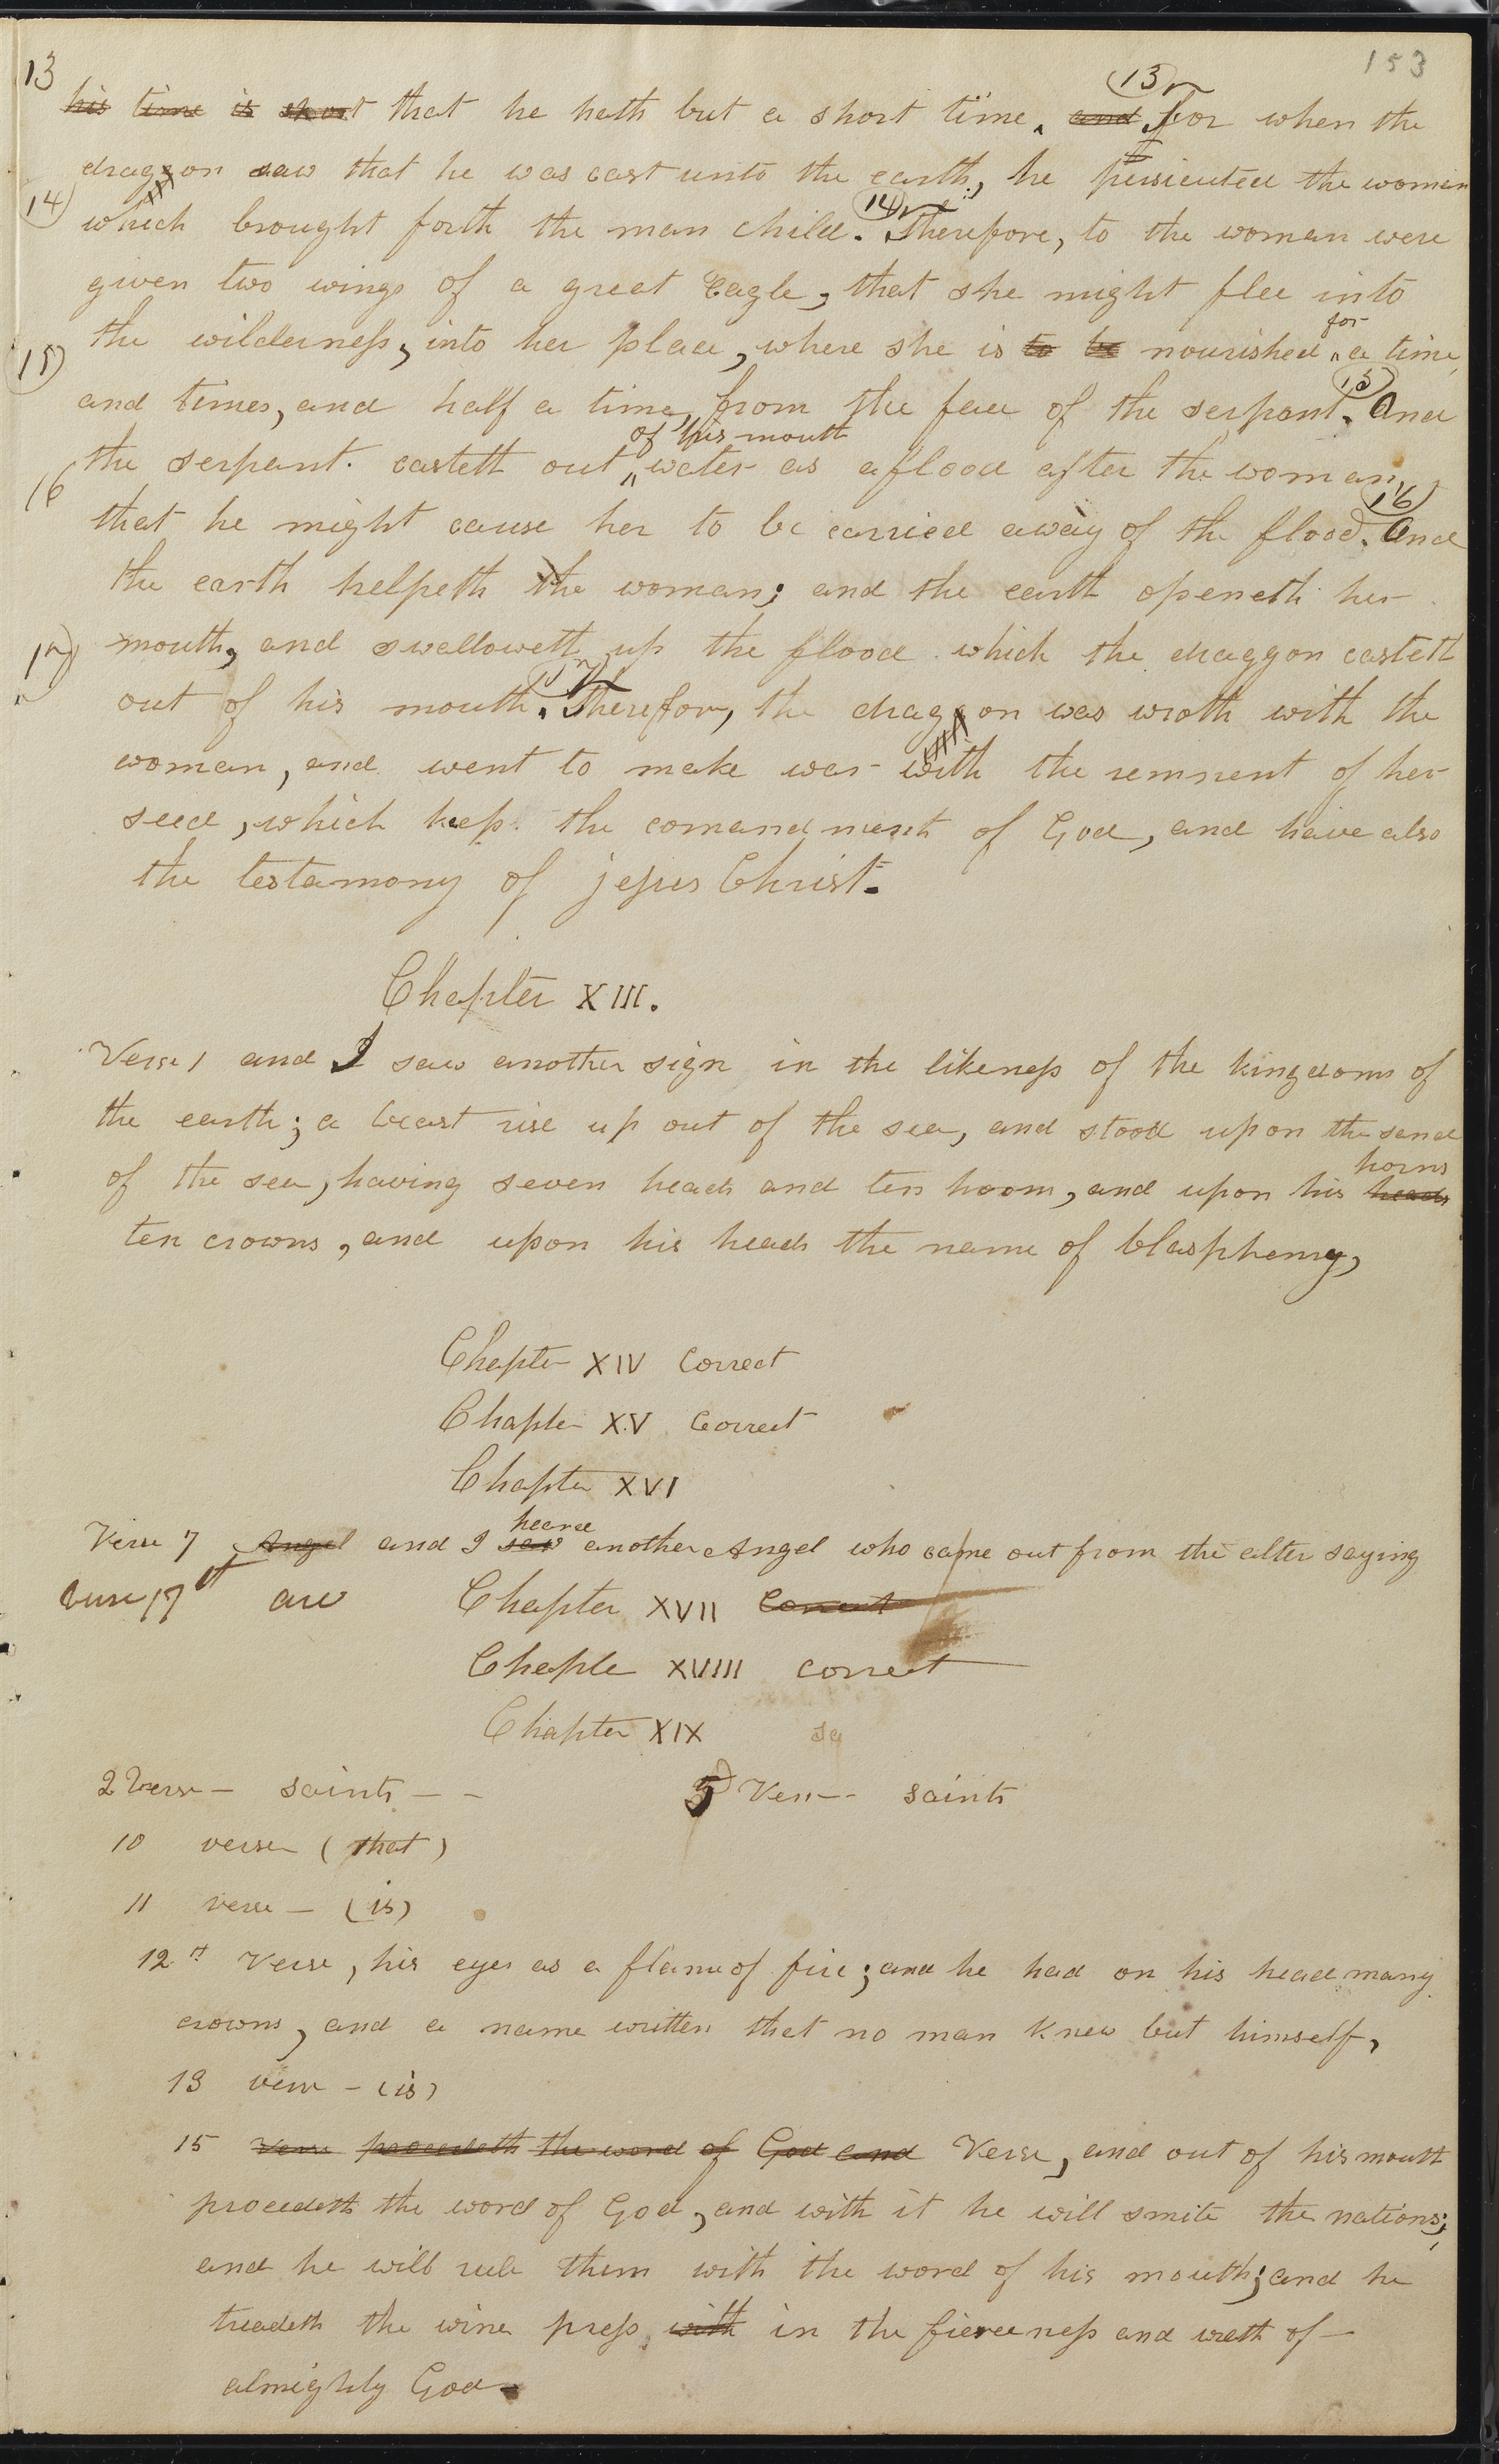 153
13
his time is short that he hath but a short time. and 13 for when the
draggon saw that he was cast unto the earth, he persicuted the woman
14 which brought forth the man child. 14 Therefore, to the woman were
given two wings of a great Eagle, that she might flee into
the wilderness, into her place, where she is to be nourished for a time,
15
and times, and half a time, from the face of the serpant. 15 And
the serpant casteth out of his mouth water as a flood after the woman,
16
that he might cause her to be carried away of the flood. 16 And
the earth helpeth the woman; and the earth openeth her
17 mouth, and swalloweth up the flood which the draggon casteth
out of his mouth. 17 Therefore, the draggon was wroth with the
woman, and went to make war with the remnent of her
seed, which keep the comandments of God, and have also
the testamony of jesus Christ.
Chapter XIII.
Verse 1 and I saw another sign in the likeness of the kingdoms of
the earth; a beast rise up out of the sea, and stood upon the sand
of the sea, having seven heads and ten hoorns, and upon his heads horns
ten crowns, and upon his heads the name of blasphemy,
Chapter XIV Correct
Chapter XV Correct
Chapter XVI
Verse 7 Angel and I saw heard another Angel who came out from the alter saying
Verse 17th are Chapter XVII Correct
Chapte XVIII correct
Chapter XIX
2 Verse — saints — - 5 Vers -- saints
10 verse (that)
11 verse — (is)
12th Verse, his eyes as a flame of fire; and he had on his head many
crowns, and a name written that no man knew but himself,
13 verse - (is)
15 Verse proceedeth the word of God and Verse, and out of his mouth
procedeth the word of God, and with it he will smite the nations;
and he will rule them with the word of his mouth; and he
treadeth the wine press with in the fierceness and wrath of —
almighty God.